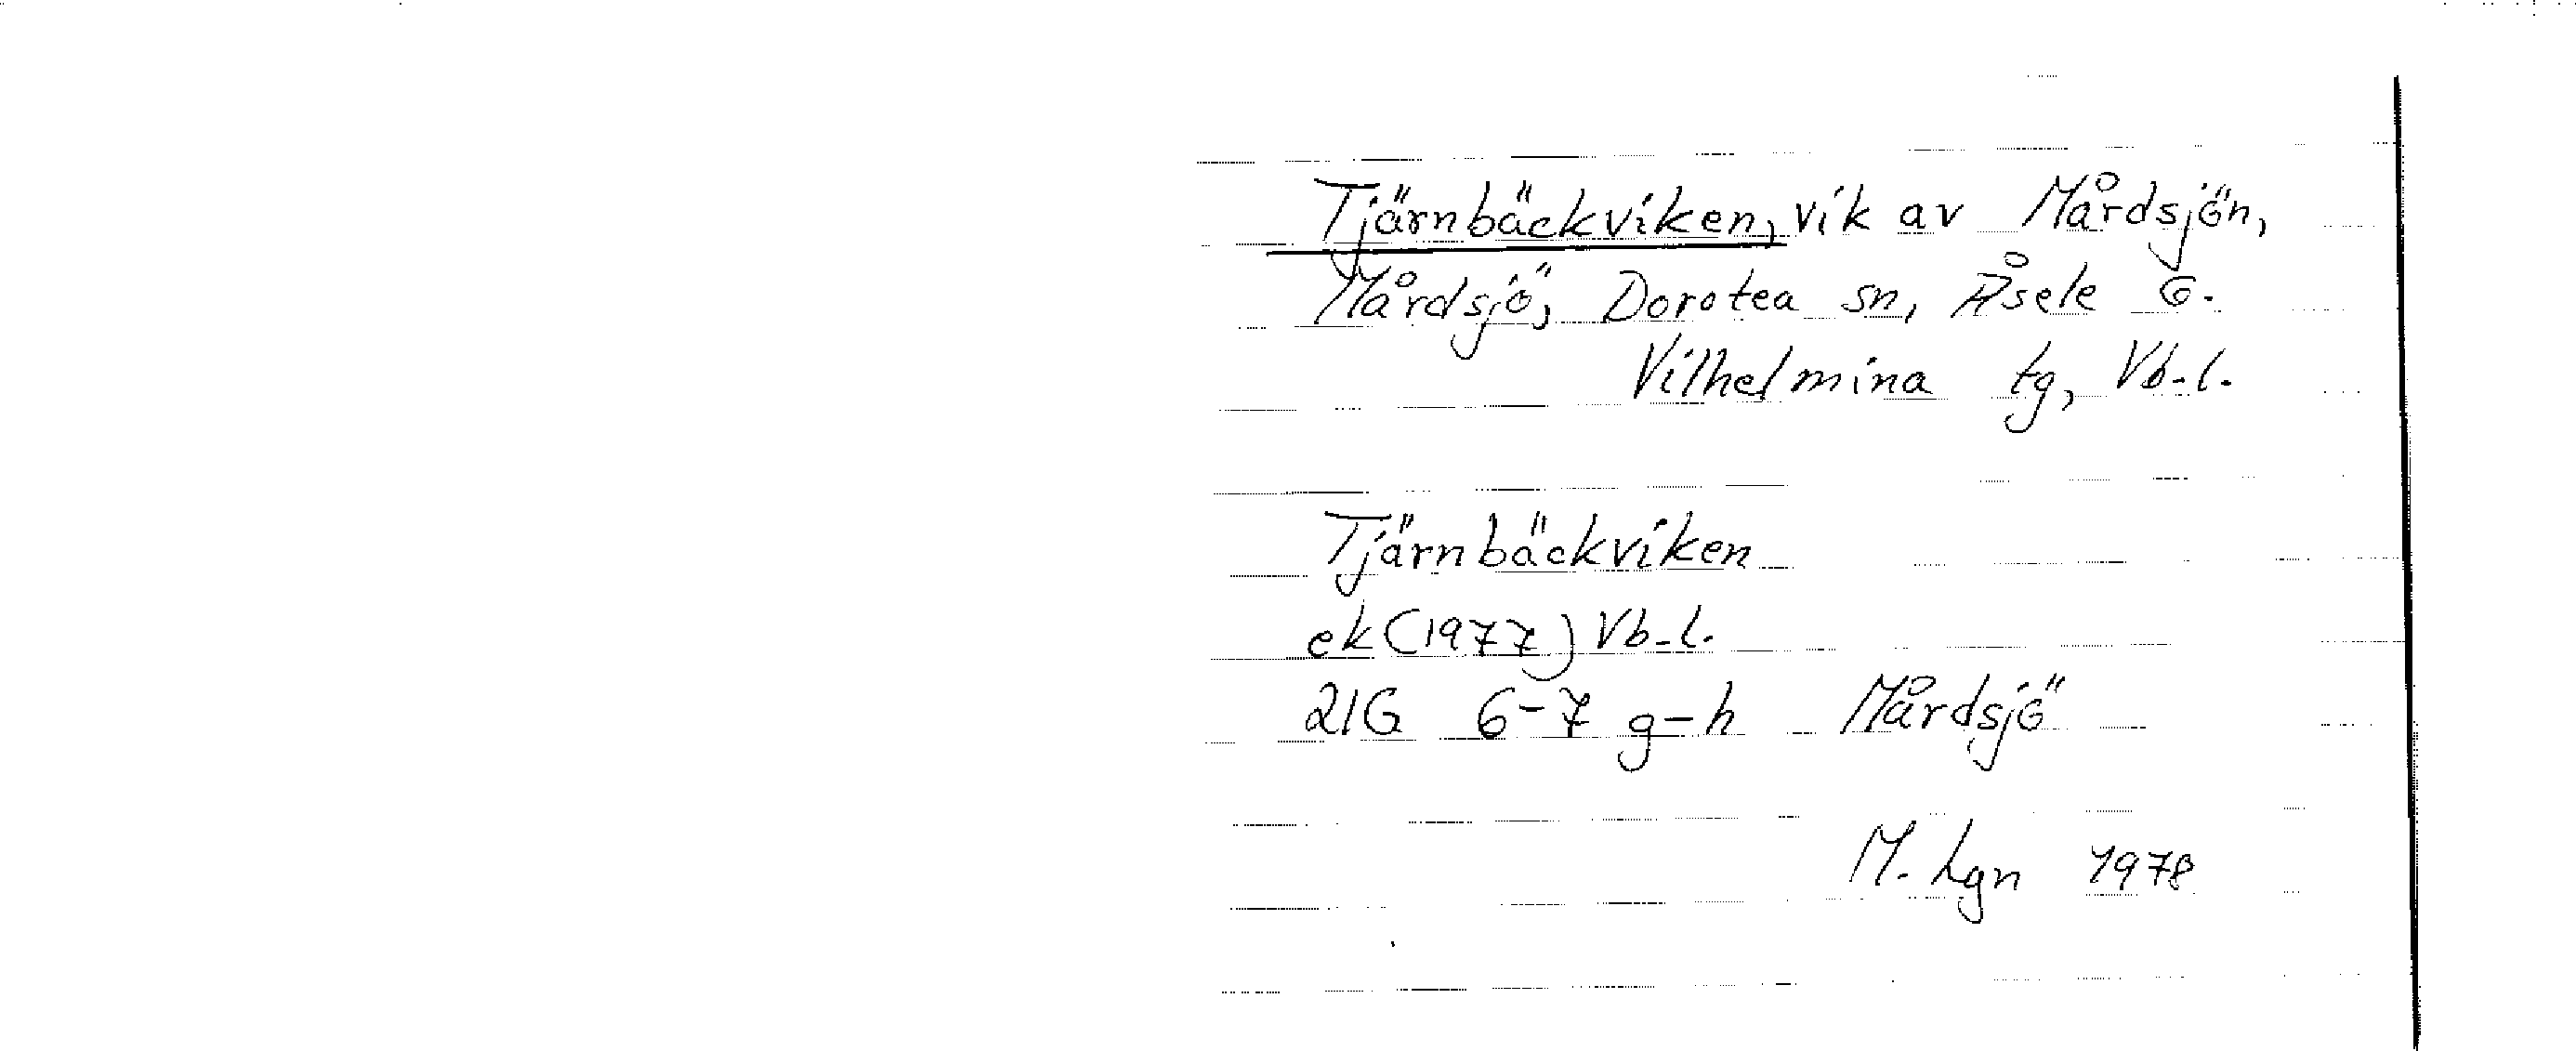 Tjärnbäckviken, vik av Mårdsjön,
Mårdsjö, Dorotea sn, Åsele o.
Vilhelmina tg, Vb-l.
Tjärnbäckviken
ek (1977) Vb-l.
21G 6-7 g-h Mårdsjö
M. Lgn 1978